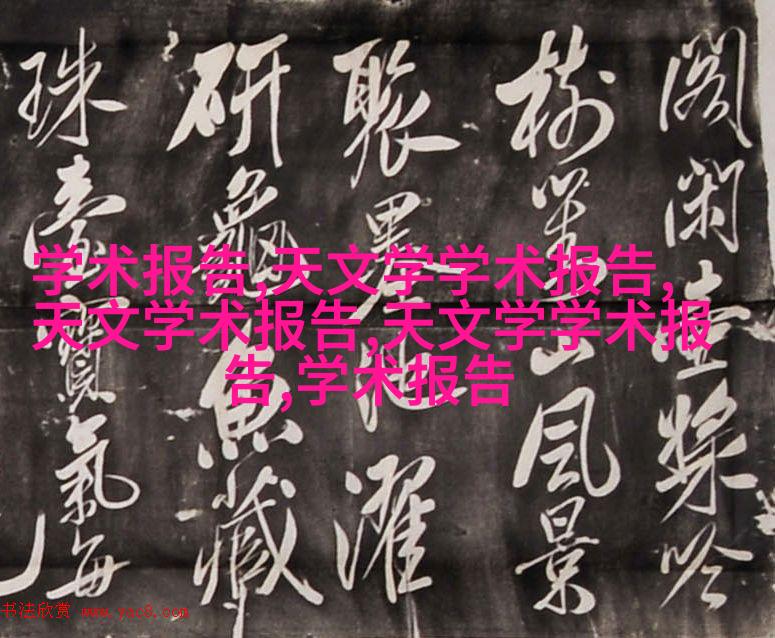 学术报告,天文学学术报告,
天文学术报告,天文学学术报
告,学术报告
樹萬山風景
墨池濯
研龜魚藏
珠臺寶氣每
书法欣赏 www.yac8.com